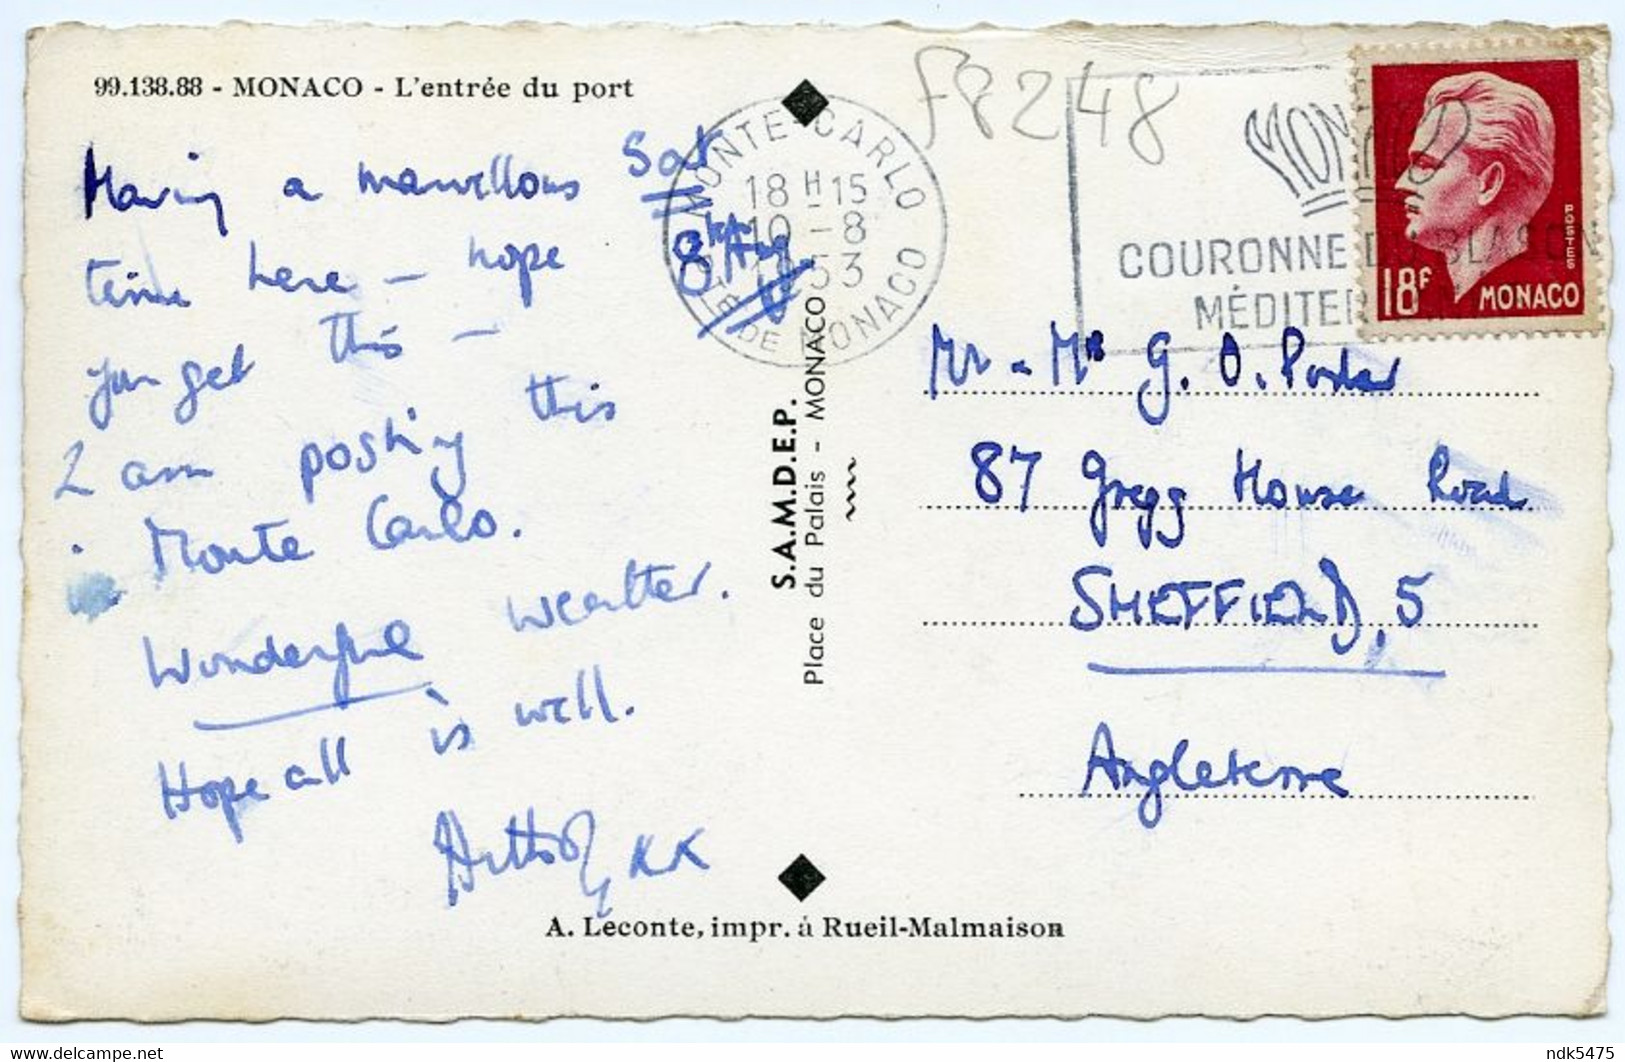 99.138.88 - MONACO - L'entrée du port
Sat
8th Aug.
Having a marvellous
time here - hope
you get this -
I am posting this
in Monte Carlo.
Wonderful weather.
Hope all is well.
XX
S.A.M.D.E.P.
Place du Palais - MONACO
A. Leconte, impr. à Rueil-Malmaison
F8248
MONTE-CARLO
18 H 15
10 - 8
1953
PTÉ DE MONACO
MONACO
COURONNE DU BLASON
MÉDITER
POSTES
18F MONACO
Mr & Mrs G. O. Porter
87 Gregg House Road
SHEFFIELD, 5
Angleterre
ndk5475